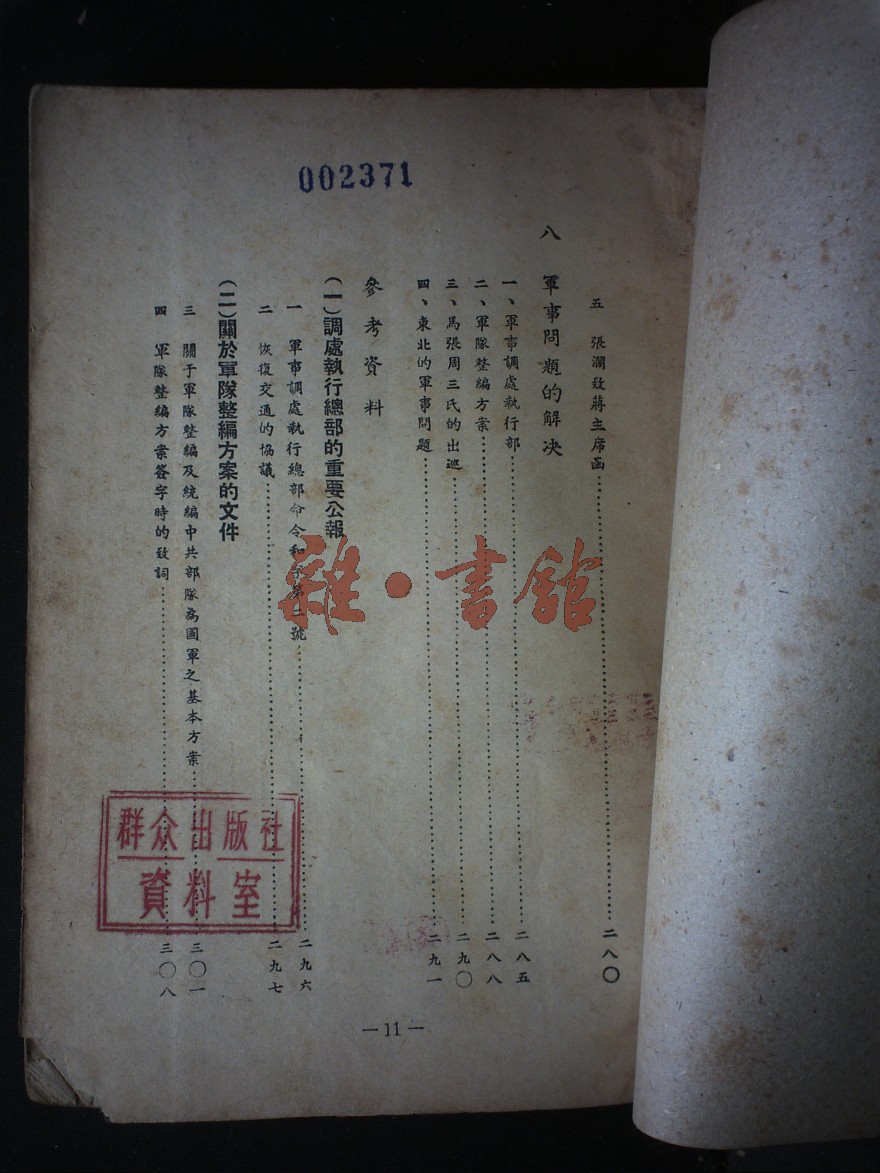 002371
五　張瀾致蔣主席函…………二八〇
八　軍事問題的解決
一、軍事調處執行部…………二八五
二、軍隊整編方案…………二八八
三、馬張周三氏的出巡…………二九〇
四、東北的軍事問題…………二九一
參考資料
(一)調處執行總部的重要公報
一　軍事調處執行總部命令和字第二號…………二九六
二　恢復交通的協議…………二九七
(二)關於軍隊整編方案的文件
三　關于軍隊整編及統編中共部隊為國軍之基本方案…………三〇一
四　軍隊整編方案簽字時的致詞…………三〇八
—11—
雜·書館
群众出版社
資料室